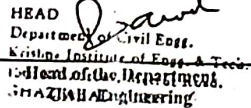 HEAD
Department of Civil Engg.
Krishna Institute of Engg. & Tech.
Head of the Department
Engineering